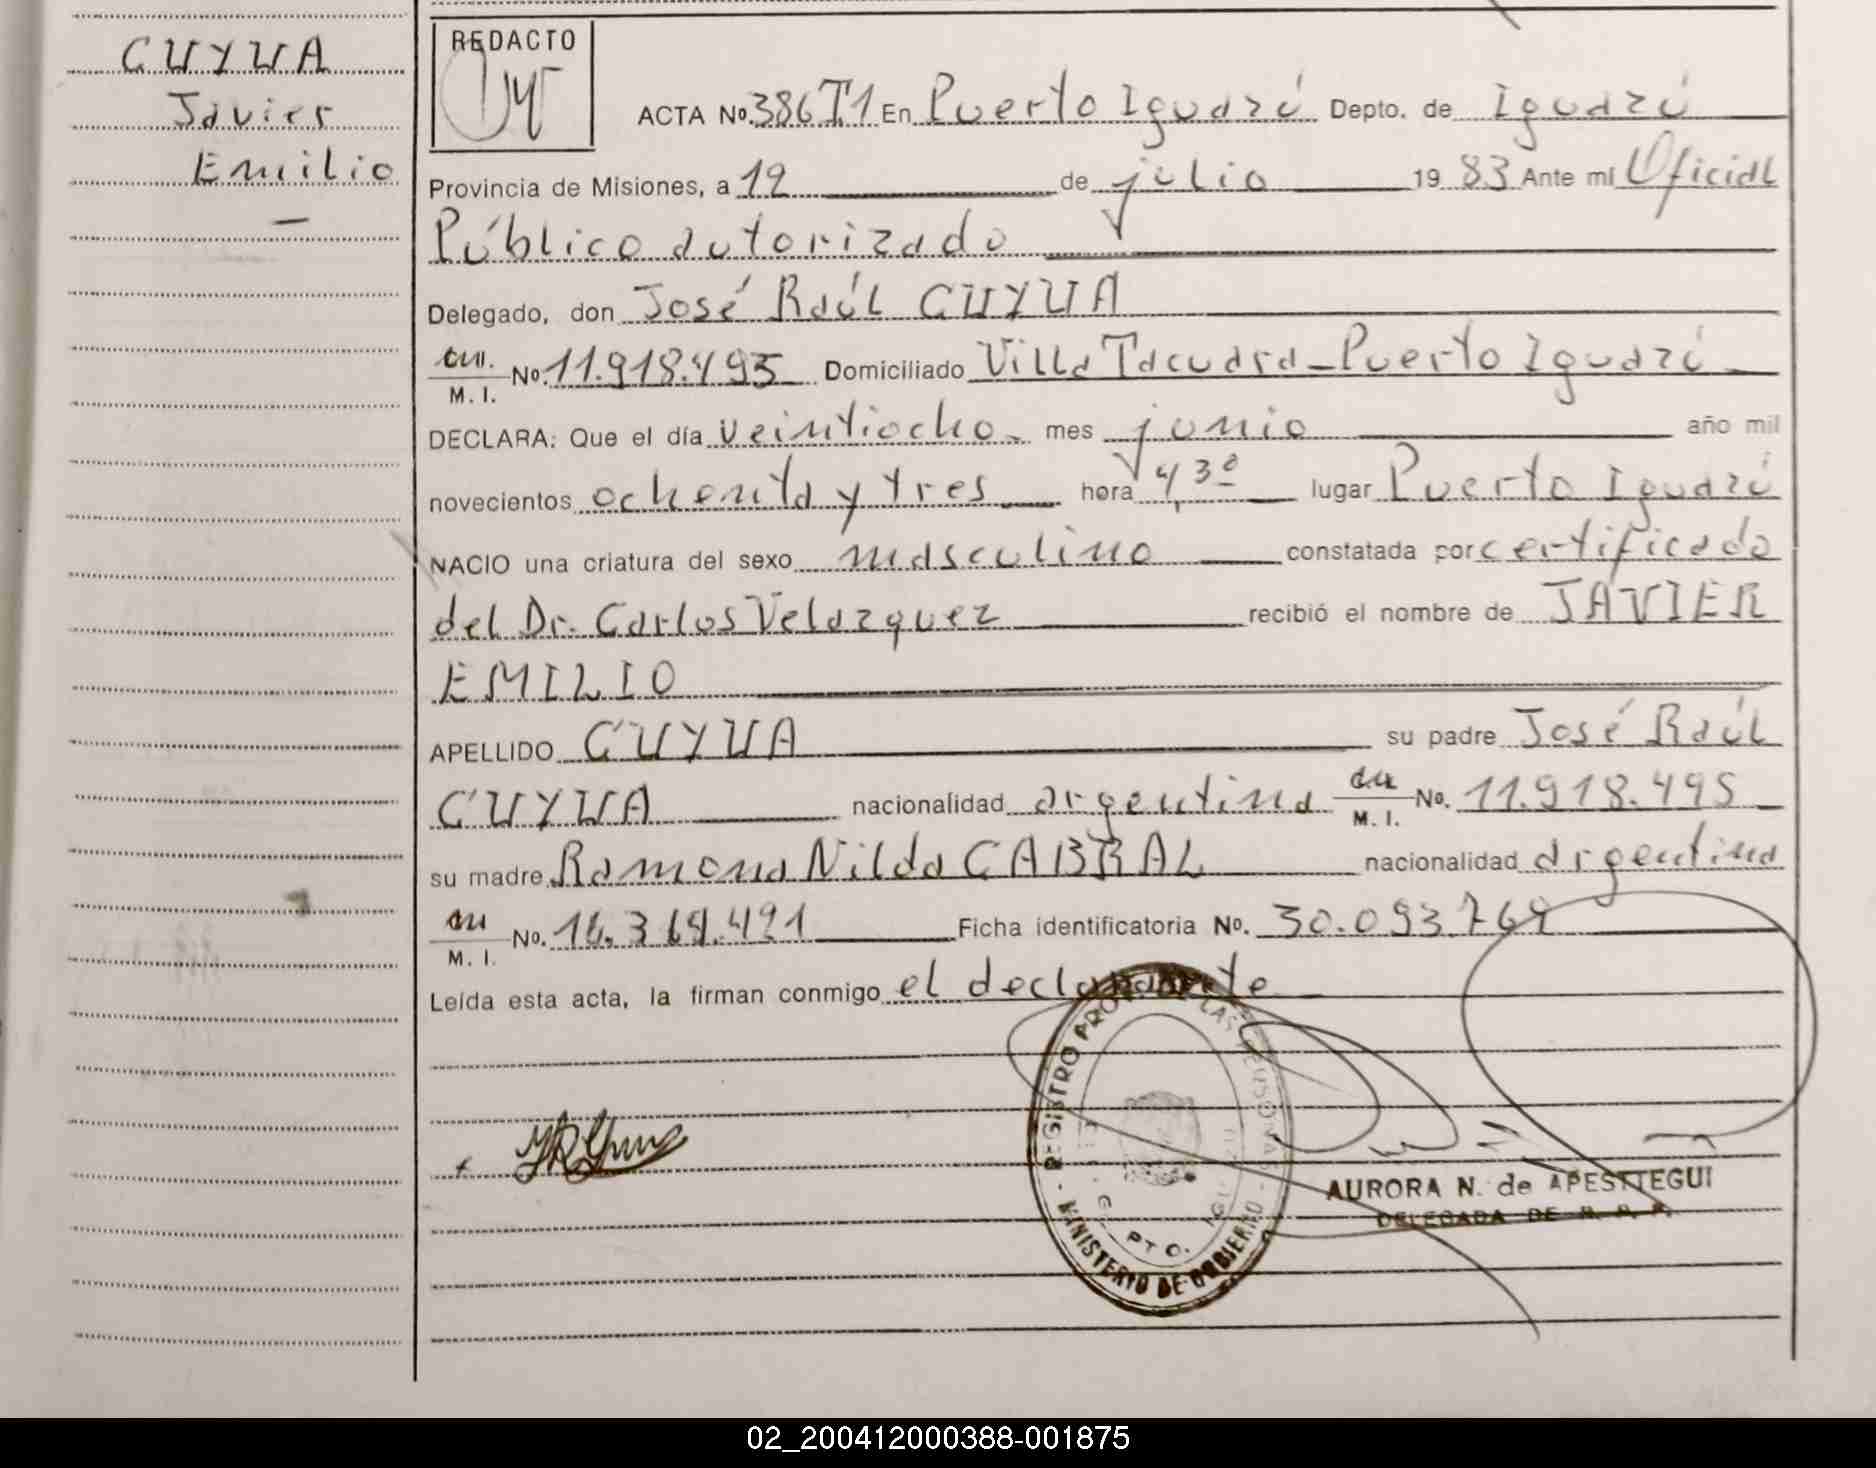 CUYUA
Javier
Emilio
REDACTO
ACTA No. 386 T.1 En Puerto Iguazú Depto. de Iguazú
Provincia de Misiones, a 12 de julio 19 83 Ante mí Oficial
Público autorizado
Delegado, don José Raúl CUYUA
M. I. No. 11.918.495 Domiciliado Villa Tacuara - Puerto Iguazú
DECLARA: Que el día veintiocho mes junio año mil
novecientos ochenta y tres hora 4,30 lugar Puerto Iguazú
NACIO una criatura del sexo masculino constatada por certificado
del Dr. Carlos Velazquez recibió el nombre de JAVIER
EMILIO
APELLIDO CUYUA su padre José Raúl
CUYUA nacionalidad argentina M. I. No. 11.918.495
su madre Ramona Nilda CABRAL nacionalidad argentina
M. I. No. Ficha identificatoria No. 30.093.769
Leída esta acta, la firman conmigo el declarante
REGISTRO PROV. DE LAS PERSONAS
MINISTERIO DE GOBIERNO
PTO.
AURORA N. de APESTTEGUI
DELEGADA DE R. P. P.
02_200412000388-001875